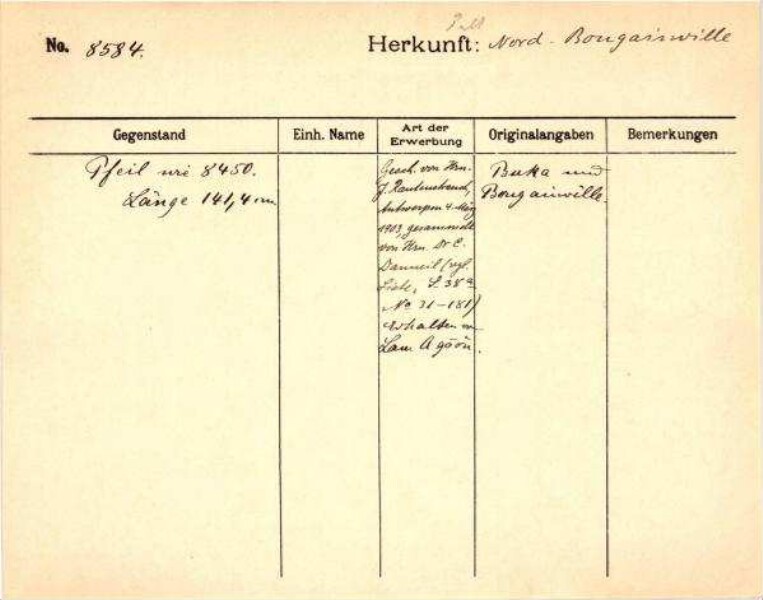 No. 8584.
Herkunft: Nord-Bougainville
Gegenstand
Einh. Name
Art der Erwerbung
Originalangaben
Bemerkungen
Pfeil wie 8450.
Länge 141,4 cm
Gesch. von Hrn.
J. Rautenstrauch,
Antwerpen 4. März
1903, gesammelt
von Hrn. Dr C.
Danneil (vgl.
Liste, S. 38a
No 31-181)
erhalten
Buka und
Bougainville.